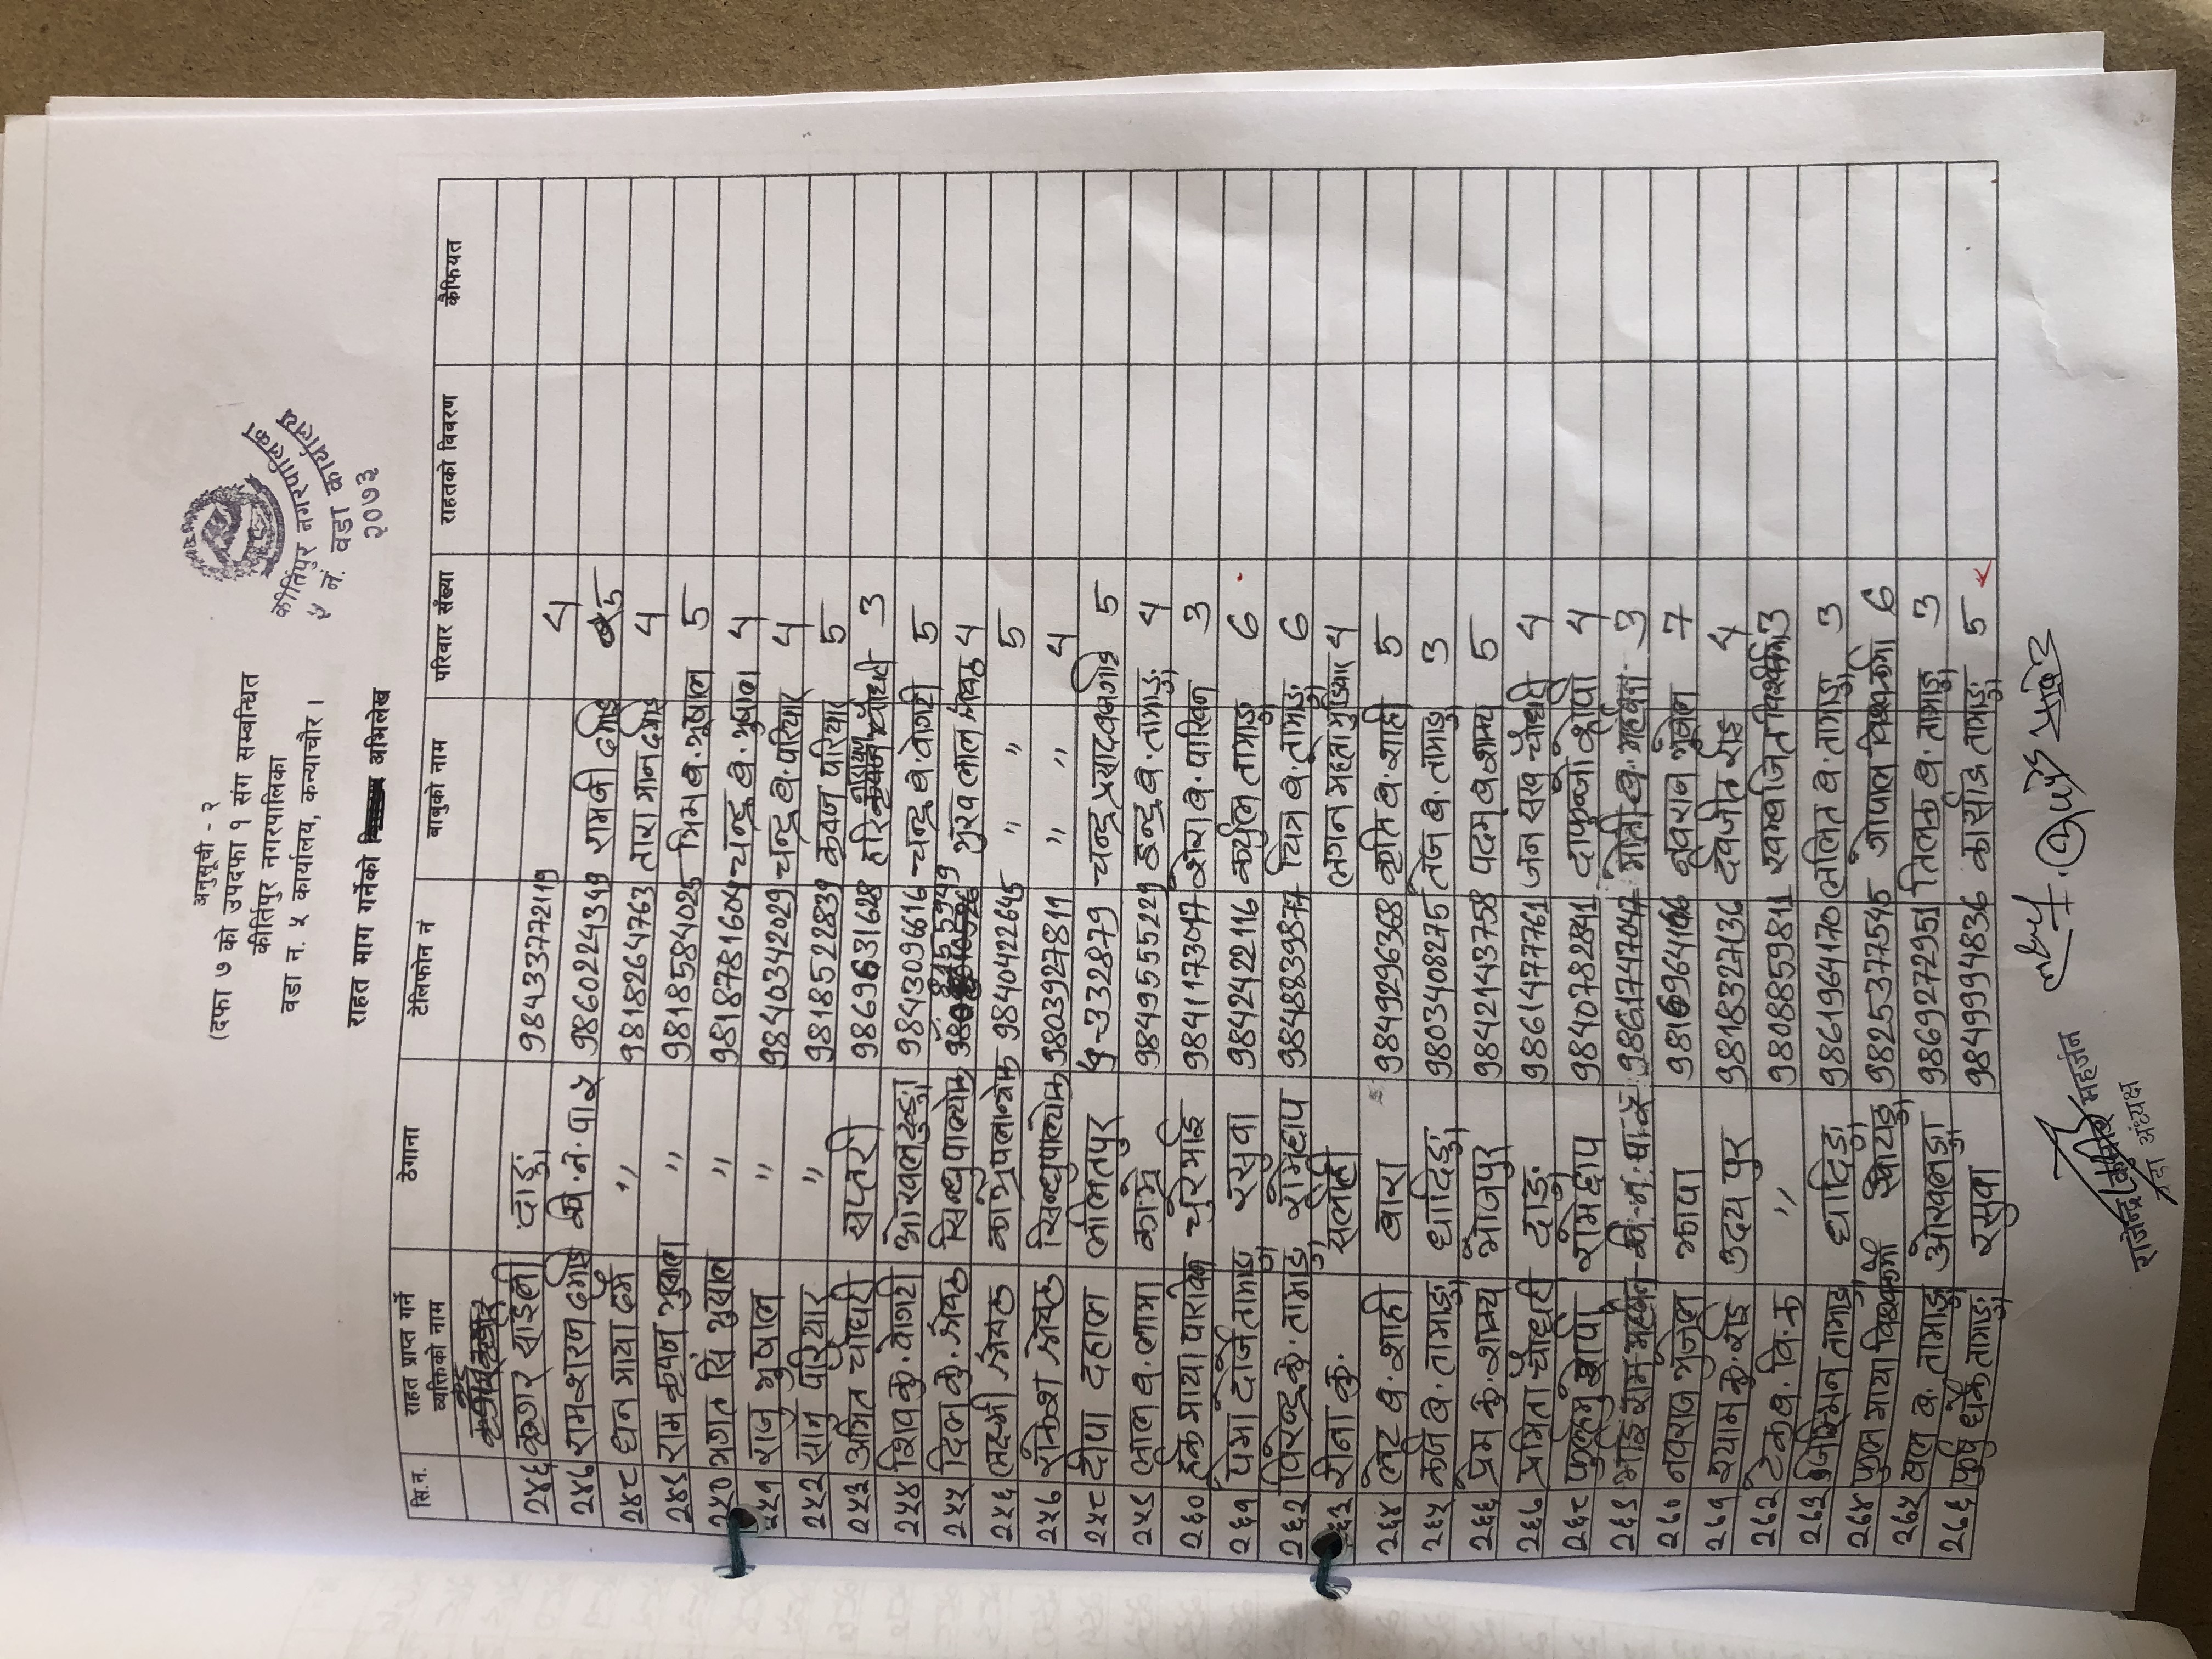 अनुसूची - २
(दफा ७ को उपदफा १ संग सम्बन्धित
कीर्तिपुर नगरपालिका
वडा न. ५ कार्यालय, कन्याचौर ।
कीर्तिपुर नगरपालिका
५ नं. वडा कार्यालय
२०७३
राहत माग गर्नेको अभिलेख
सि.न. राहत प्राप्त गर्ने व्यक्तिको नाम ठेगाना टेलिफोन नं बाबुको नाम परिवार संख्या राहतको विवरण कैफियत
२४६ साइली दाङ्ग 9843377219 4
२४७ रामशरन दमाइ की.न.पा.५ 9860224349 रामजी दमाइ 5
२४८ धन माया दर्मी " 9818264763 तारा गान दमाइ 4
२४९ राम कृपन भुसाल " 9818584025 भिम ब. भूषाल 5
२५० भगत सिं भुसाल " 9818781604 चन्द्र ब. भुषाल 4
२५१ राजु भुषाल " 9840342029 चन्द्र ब. परियार 4
२५२ सानु परियार " 9818522839 कृपन परियार 5
२५३ अमित चौधरी सप्तरी 9869631628 हरि नारायण चौधरी 3
२५४ शिव कु. वोगटी ओखलढुङ्गा 9843096616 चन्द्र ब. वोगटी 5
२५५ दिल कु. श्रेष्ठ सिन्धुपाल्चोक सुरव लाल श्रेष्ठ 4
२५६ लक्ष्मी श्रेष्ठ काभ्रेपलान्चोक 9840422645 " " 5
२५७ रोकेश श्रेष्ठ सिन्धुपाल्चोक 9803927811 " " 4
२५८ दीपा दहाल ललितपुर 5-332879 चन्द्र प्रसाद 5
२५९ लाल ब. लामा काभ्रे 9849555229 इन्द्र ब. तामाङ्ग 4
२६० डेक माया पाख्रिन 9841173047 शेरा ब. पाख्रिन 3
२६१ पेमा दोर्जे तामाङ्ग रसुवा 9842422116 तामाङ्ग 6
२६२ विरेन्द्र कु. तामाङ्ग रामेछाप 9848839877 चित्र ब. तामाङ्ग 6
२६३ रीना कु. सर्लाही भगन महतो मुडियार 4
२६४ भेट ब. शाही बारा 9849296368 कृति ब. शाही 5
२६५ कर्ज ब. तामाङ्ग धादिङ्ग 9803408275 तेज ब. तामाङ्ग 3
२६६ प्रेम कु. शाम्य भोजपुर 9842143758 पदम ब शाम्य 5
२६७ प्रमिता चौधरी दाङ्ग 9861477761 जन सख चौधरी 4
२६८ शेर्पा रामेछाप 9840782841 शेर्पा 4
२६९ भाइ राम महर्जन की.न.पा.५ 9861747047 मोती ब. महर्जन 3
२७० नवराज भुजेल झापा भुजेल 7
२७१ श्याम कु. राइ उदयपुर 9818327136 देवजीत राइ 4
२७२ टेक ब. वि.क " 9808859811 3
२७३ तामाङ्ग धादिङ्ग 9861964170 ललित ब. तामाङ्ग 3
२७४ फुल माया विश्वकर्मा 9825377545 गोपाल विश्वकर्मा 6
२७५ बल ब. तामाङ्ग ओखलढुङ्गा 9869272951 तिलक ब. तामाङ्ग 3
२७६ तामाङ्ग रसुवा 9849994836 तामाङ्ग 5
राजेन्द्र कुमार महर्जन
वडा अध्यक्ष